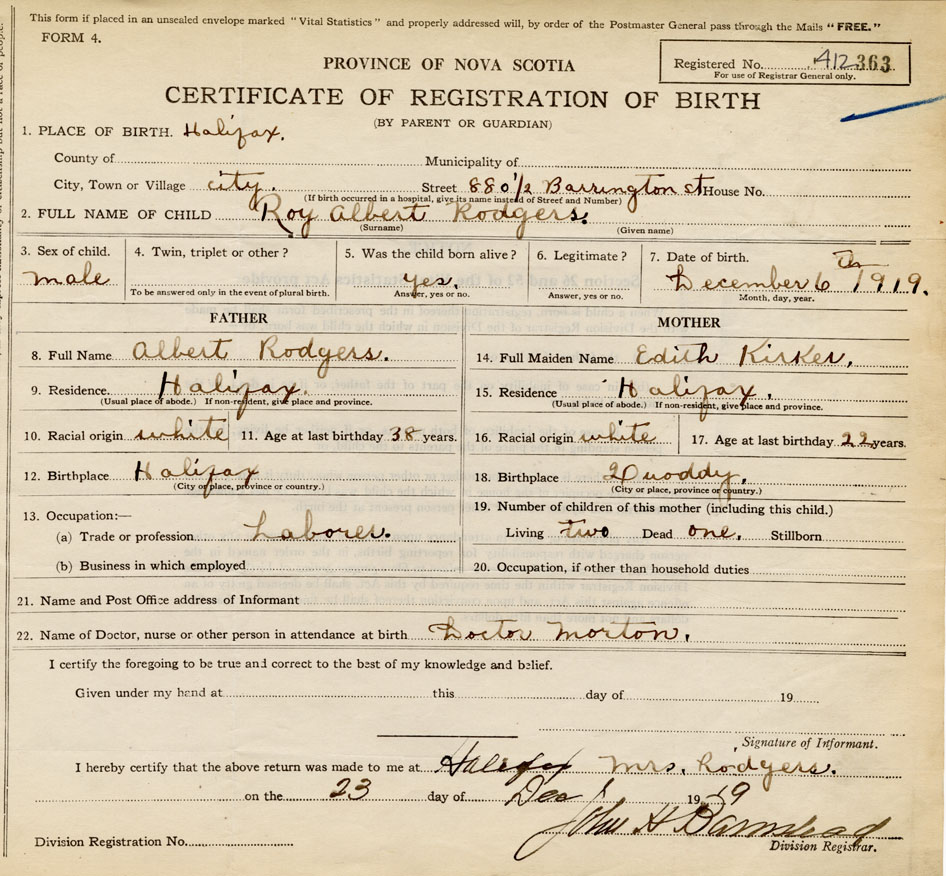 This form if placed in an unsealed envelope marked "Vital Statistics" and properly addressed will, by order of the Postmaster General pass through the Mails "FREE."
FORM 4.
Registered No. 412363
For use of Registrar General only.
PROVINCE OF NOVA SCOTIA
CERTIFICATE OF REGISTRATION OF BIRTH
(BY PARENT OR GUARDIAN)
1. PLACE OF BIRTH. Halifax.
County of Municipality of
City, Town or Village city. Street 880 1/2 Barrington st House No.
(If birth occurred in a hospital, give its name instead of Street and Number)
2. FULL NAME OF CHILD Roy Albert Rodgers.
(Surname) (Given name)
3. Sex of child. 4. Twin, triplet or other? 5. Was the child born alive? 6. Legitimate? 7. Date of birth.
male Yes. December 6th 1919.
To be answered only in the event of plural birth. Answer, yes or no. Answer, yes or no. Month, day, year.
FATHER MOTHER
8. Full Name Albert Rodgers. 14. Full Maiden Name Edith Kirker,
9. Residence. Halifax. 15. Residence Halifax,
(Usual place of abode.) If non-resident, give place and province. (Usual place of abode.) If non-resident, give place and province.
10. Racial origin white 11. Age at last birthday 38 years. 16. Racial origin white 17. Age at last birthday 22 years.
12. Birthplace Halifax 18. Birthplace Quoddy,
(City or place, province or country.) (City or place, province or country.)
13. Occupation:— 19. Number of children of this mother (including this child.)
(a) Trade or profession Laborer. Living two Dead one, Stillborn
(b) Business in which employed 20. Occupation, if other than household duties
21. Name and Post Office address of Informant
22. Name of Doctor, nurse or other person in attendance at birth Doctor Morton,
I certify the foregoing to be true and correct to the best of my knowledge and belief.
Given under my hand at this day of 19
Signature of Informant.
I hereby certify that the above return was made to me at Halifax Mrs. Rodgers.
on the 23 day of Dec 1919
John H Barnstead
Division Registration No. Division Registrar.